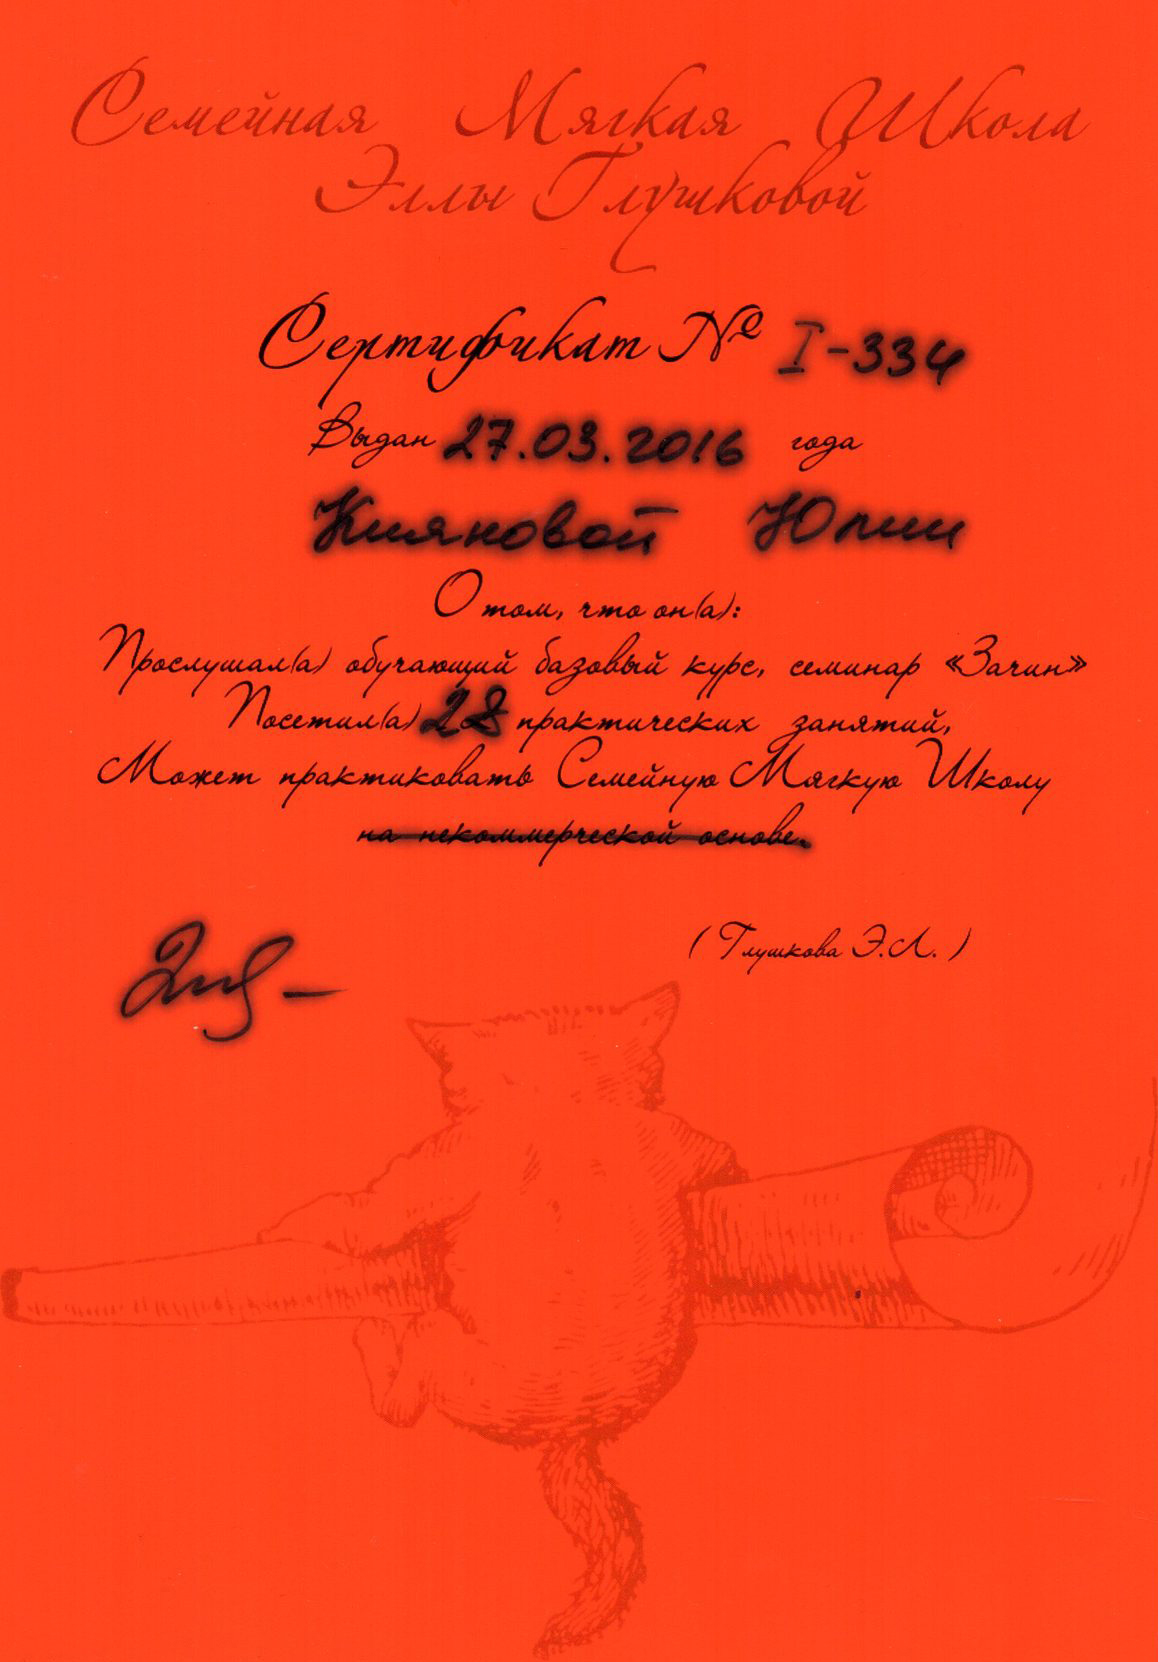 Семейная Мягкая Школа
Эллы Глушковой
Сертификат № I-334
Выдан 27.03.2016 года
Кияновой Юлии
О том, что он(а):
Прослушал(а) обучающий базовый курс, семинар «Зачин»
Посетил(а) 28 практических занятий,
Может практиковать Семейную Мягкую Школу
на некоммерческой основе.
(Глушкова Э.Л.)